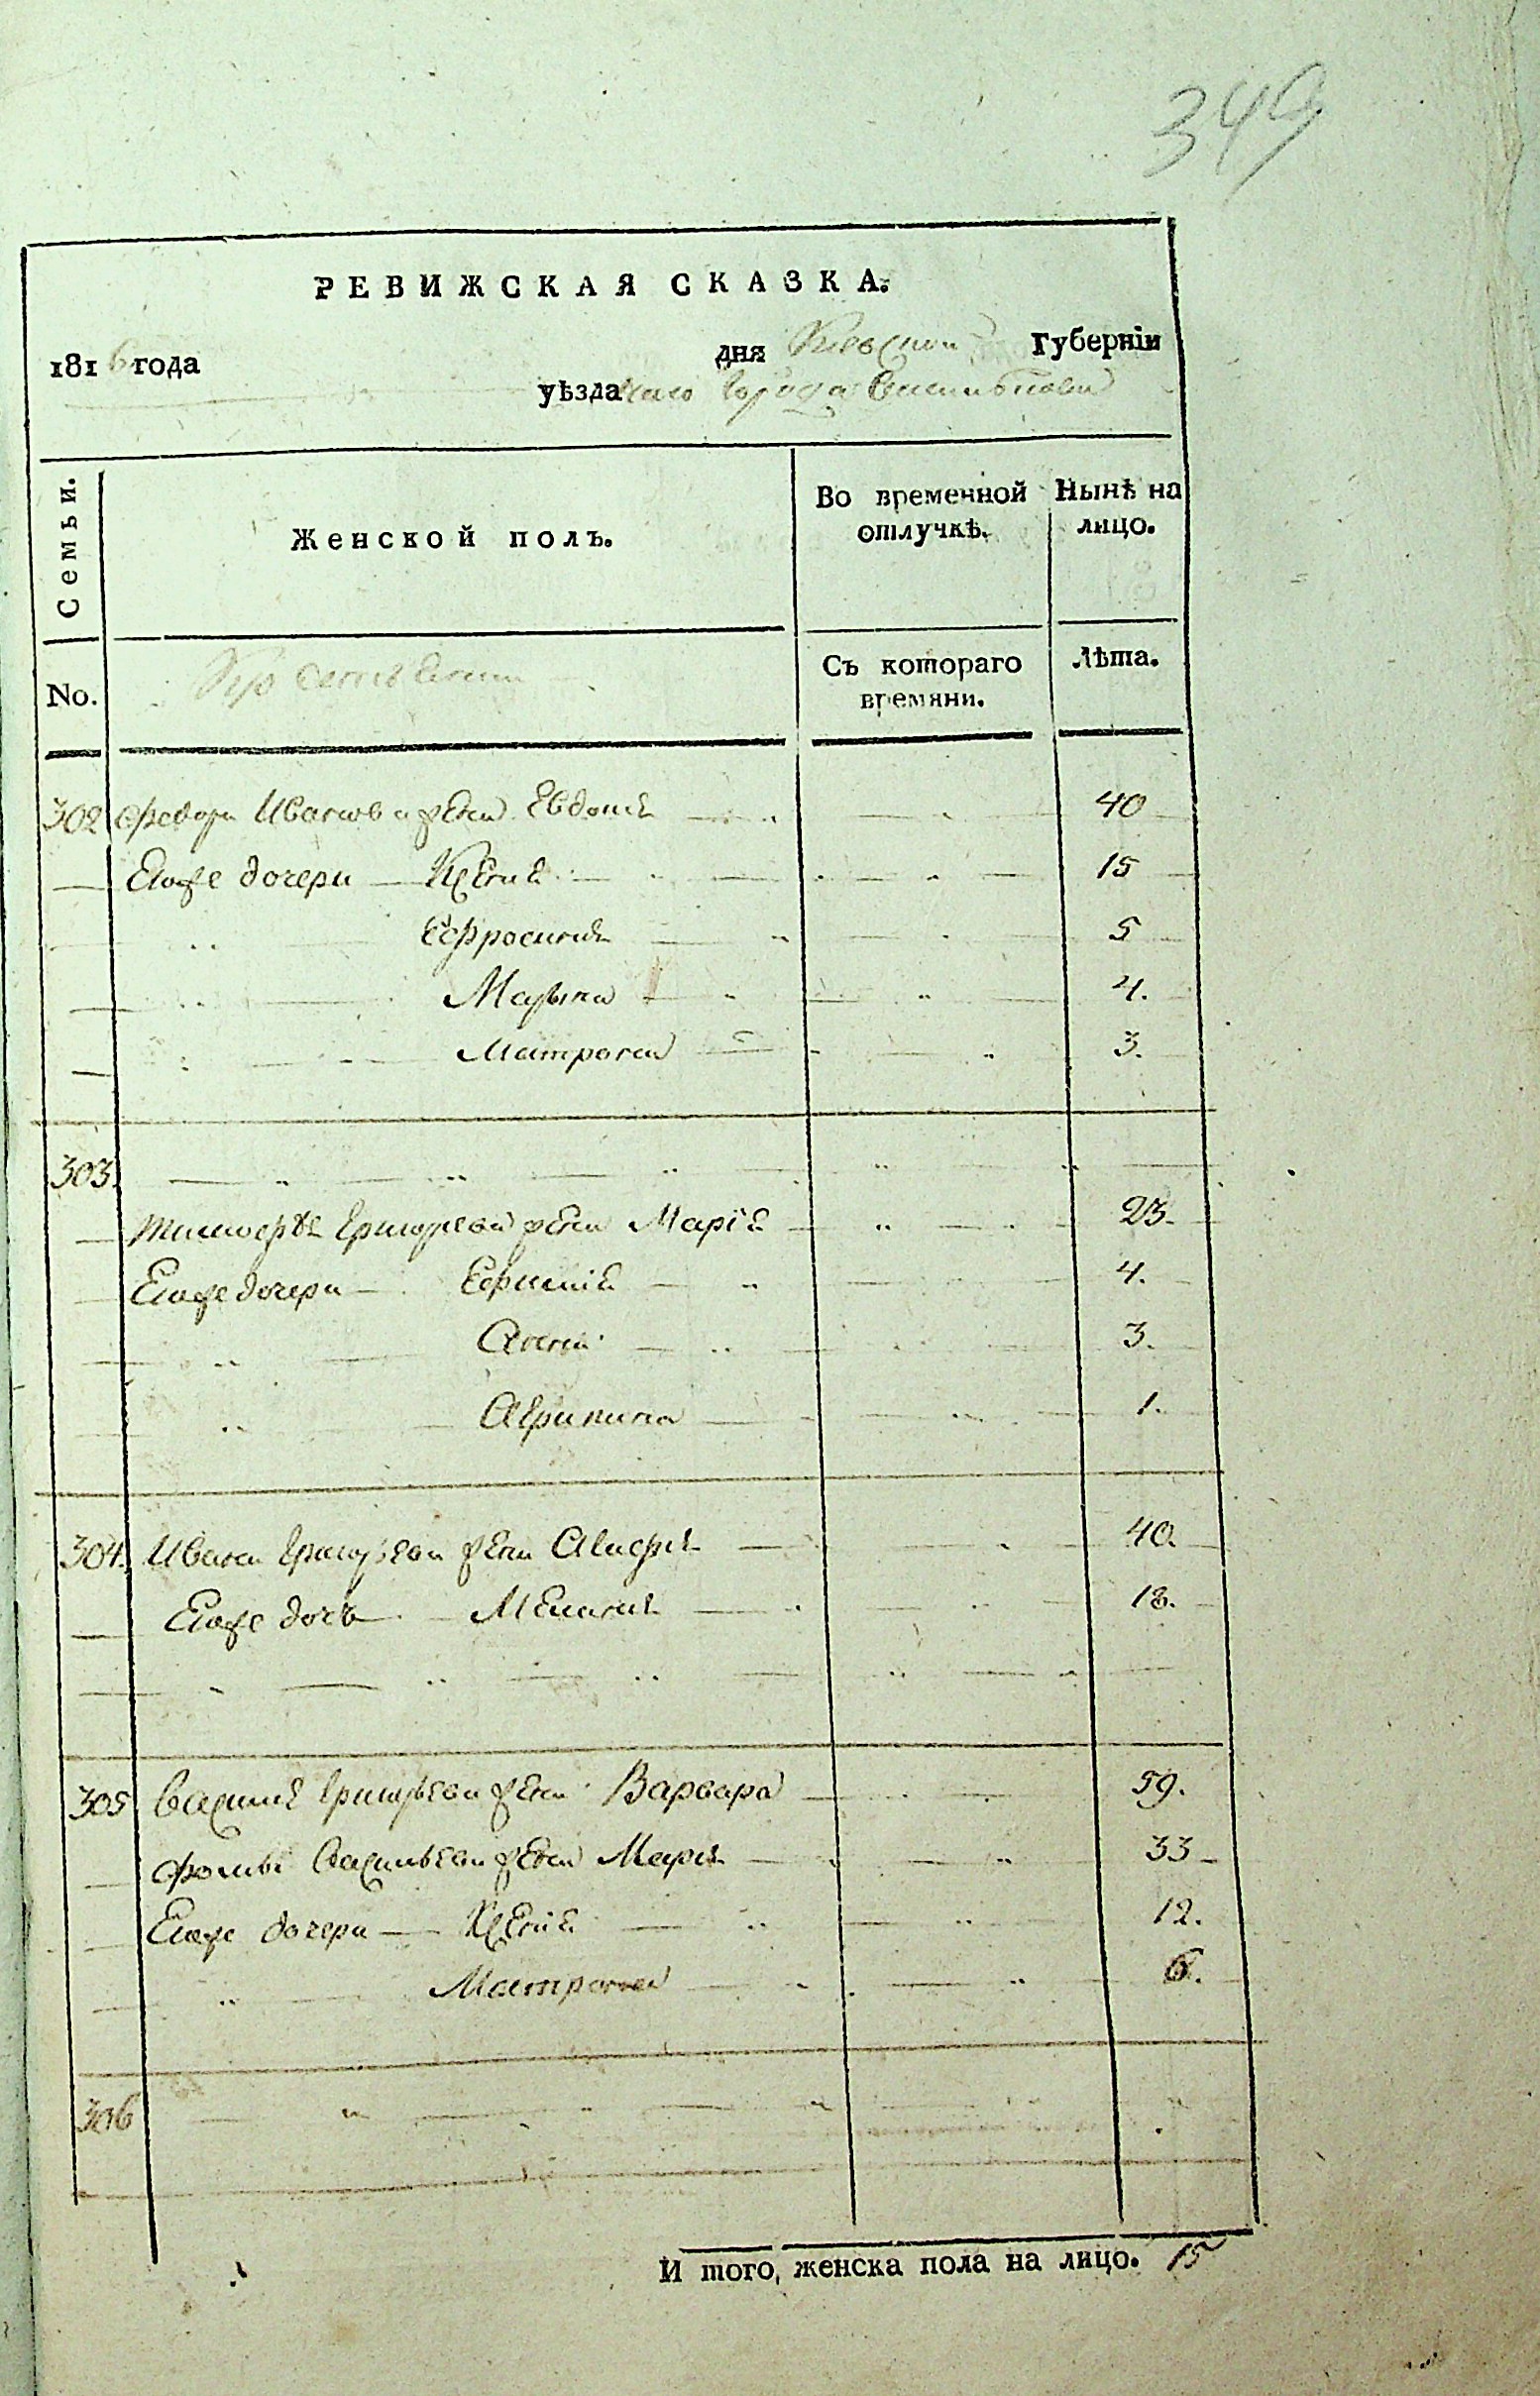 349
РЕВИЖСКАЯ СКАЗКА.
1816 года дня Киевской Губерніи
уѣзда города
Семьи.
Женской полъ.
Во временной отлучкѣ.
Нынѣ на лицо.
No.
Съ котораго времяни.
Лѣта.
302 Федора Иванова жена Евдокия 40
Егоже дочери Ксения 15
Ефросиния 5
Марына 4.
Матрона 3.
303.
Тимофея Григорьева жена Марія 23.
Егоже дочери Ефимія 4.
Анна 3.
Агрипина 1.
304. Ивана Григорьева жена Агафия 40.
Егоже дочь Мелания 18.
305 Василия Григорьева жена Варвара 59.
Фомы Васильева жена Мария 33
Егоже дочери Ксенія 12.
Матрона 6.
306
И того, женска пола на лицо. 15